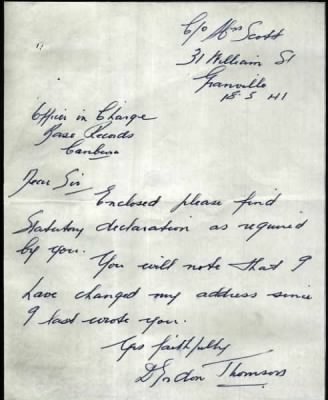 C/o Mrs Scott
31 William St
Granville
18.5.41
Officer in Charge
Base Records
Canberra
Dear Sir
Enclosed please find
Statutory declaration as required
by you.
You will note that I
have changed my address since
I last wrote you.
Yrs faithfully
D Gordon Thomson